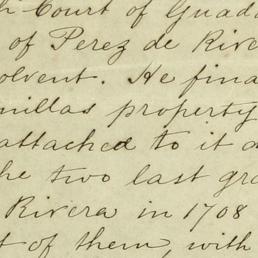 h Court of Guada
of Perez de River
olvent. He fina
nillas property
attached to it a
he two last gra
Rivera in 1708
t of them, with